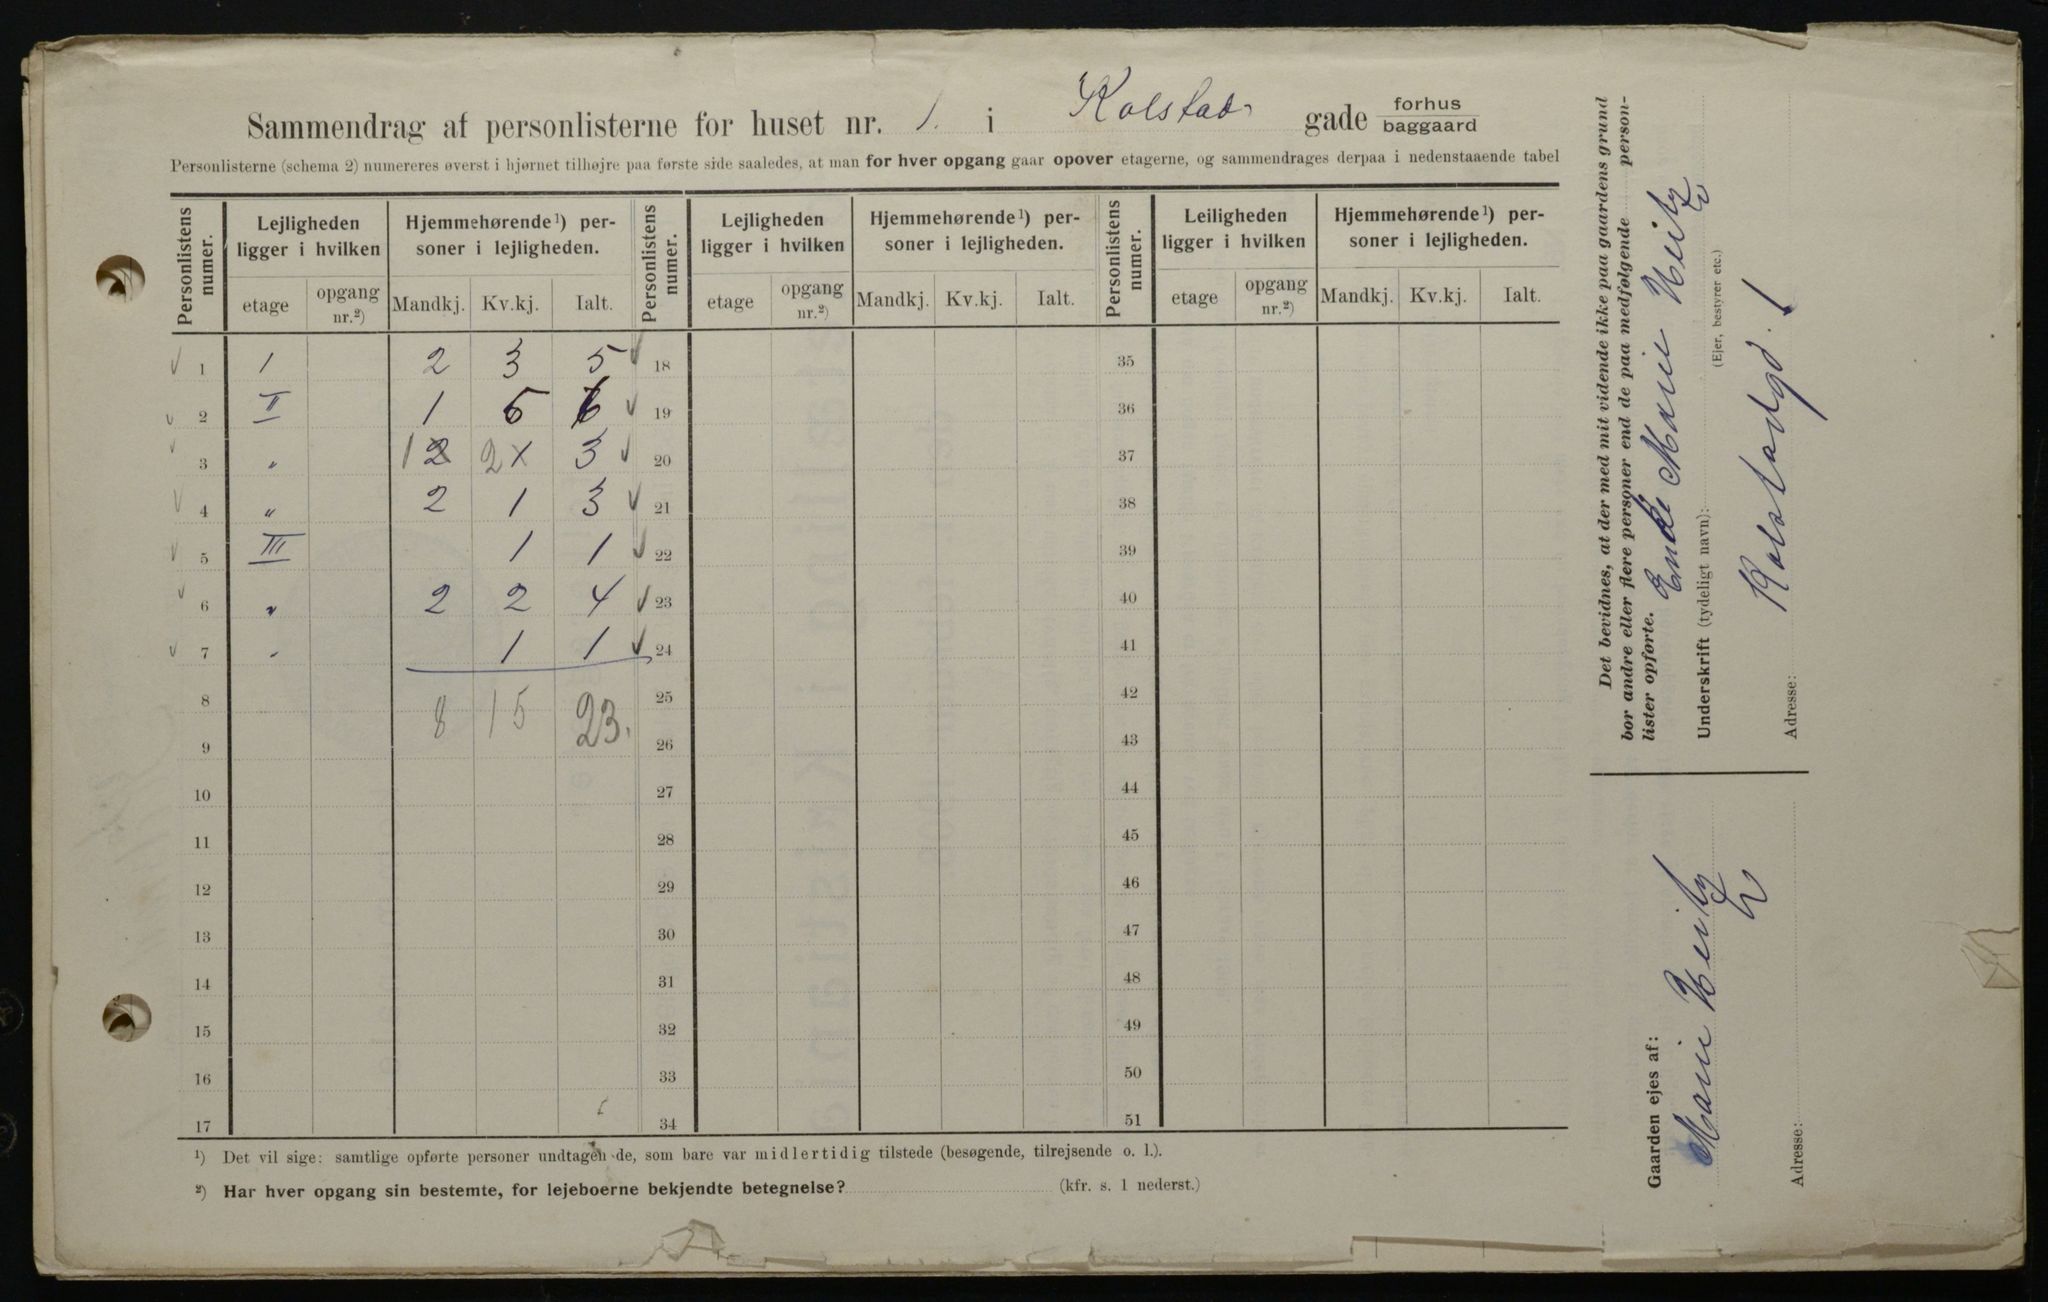 Sammendrag af personlisterne for huset nr. 1. i Kolstad gade forhus
baggaard
Personlisterne (schema 2) numereres øverst i hjørnet tilhøjre paa første side saaledes, at man for hver opgang gaar opover etagerne, og sammendrages derpaa i nedenstaaende tabel
Personlistens numer. Lejligheden ligger i hvilken Hjemmehørende¹) personer i lejligheden. Personlistens numer. Lejligheden ligger i hvilken Hjemmehørende¹) personer i lejligheden. Personlistens numer. Leiligheden ligger i hvilken Hjemmehørende¹) personer i lejligheden.
etage opgang nr.²) Mandkj. Kv.kj. Ialt. etage opgang nr.²) Mandkj. Kv.kj. Ialt. etage opgang nr.²) Mandkj. Kv.kj. Ialt.
✓ 1 1 2 3 5 ✓ 18 35
✓ 2 II 1 5 6 ✓ 19 36
✓ 3 " 1 2 2 x 3 ✓ 20 37
✓ 4 " 2 1 3 ✓ 21 38
✓ 5 III 1 1 ✓ 22 39
✓ 6 " 2 2 4 ✓ 23 40
✓ 7 " 1 1 ✓ 24 41
8 8 15 23. 25 42
9 26 43
10 27 44
11 28 45
12 29 46
13 30 47
14 31 48
15 32 49
16 33 50
17 34 51
¹) Det vil sige: samtlige opførte personer undtagen de, som bare var midlertidig tilstede (besøgende, tilrejsende o. l.).
²) Har hver opgang sin bestemte, for lejeboerne bekjendte betegnelse? (kfr. s. 1 nederst.)
Det bevidnes, at der med mit vidende ikke paa gaardens grund
bor andre eller flere personer end de paa medfølgende personlister opførte.
Enke Marie Heitz
Underskrift (tydeligt navn):
(Ejer, bestyrer etc.)
Kolstadgd. 1
Adresse:
Gaarden ejes af:
Marie Heitz
Adresse: